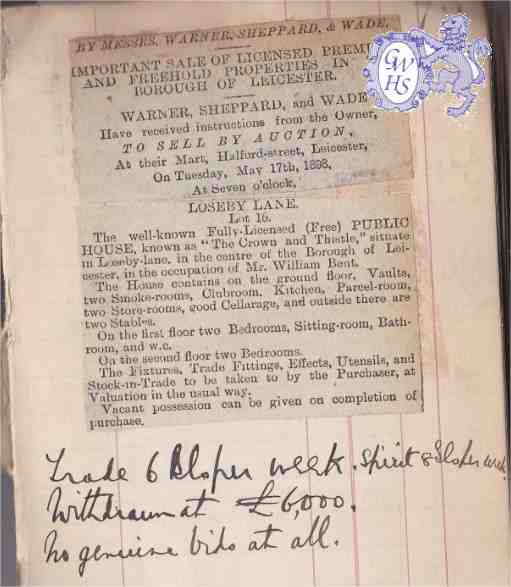 BY MESSES. WARNER, SHEPPARD, & WADE.
IMPORTANT SALE OF LICENSED PREMI
AND FREEHOLD PROPERTIES IN
BOROUGH OF LEICESTER.
WARNER, SHEPPARD, and WADE
Have received instructions from the Owner,
TO SELL BY AUCTION,
At their Mart, Halford-street, Leicester,
On Tuesday, May 17th, 1898,
At Seven o'clock,
LOSEBY LANE.
Lot 16.
The well-known Fully-Licensed (Free) PUBLIC
HOUSE, known as "The Crown and Thistle," situate
in Loseby-lane, in the centre of the Borough of Lei-
cester, in the occupation of Mr. William Bent.
The House contains on the ground floor, Vaults,
two Smoke-rooms, Clubroom, Kitchen, Parcel-room,
two Store-rooms, good Cellarage, and outside there are
two Stables.
On the first floor two Bedrooms, Sitting-room, Bath-
room, and w.c.
On the second floor two Bedrooms.
The Fixtures, Trade Fittings, Effects, Utensils, and
Stock-in-Trade to be taken to by the Purchaser, at
Valuation in the usual way.
Vacant possession can be given on completion of
purchase.
GWHS
Trade 6 per week. Spirit per week.
Withdrawn at £6,000.
No genuine bids at all.